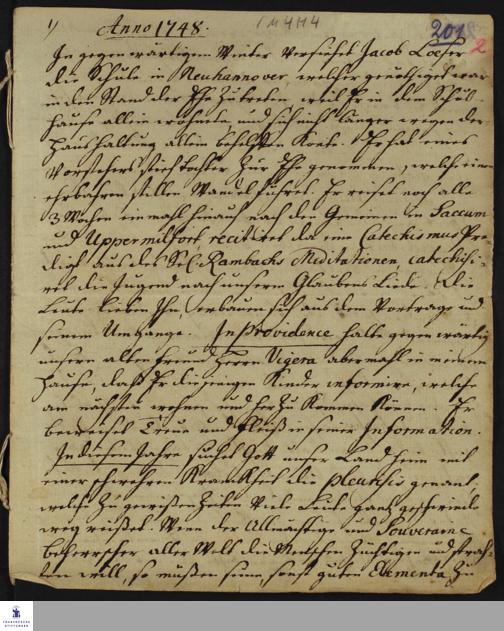 1) Anno 1748. 1 M 4 H 4 201 2
In gegenwärtigem Winter versiehet Jacob Loeser
die Schule in Neuhannover, welcher genöthiget war
in den Stand der Ehe zu treten, weil Er in dem Schul-
hause allein wohnete, und sich nicht länger wegen der
Haushaltung allein behelffen konte. Er hat eines
Vorstehers Tochter zur Ehe genommen, welche einen
ehrbahren stillen Wandel führet. Er reiset noch alle
3 Wochen einmahl hinauf nach den Gemeinen in Saccum
und Uppermilfort, recitiret da eine Catechismus Pre-
digt aus des Sel. Rambachs Meditationen, catechisi-
ret die Jugend nach unserm Glaubens Liede. Die
Leute lieben Ihn, erbauen sich aus dem Vortrage und
seinem Umgange. In Providence halte gegenwärtig
unsern alten Freund Herrn Vigera abermahl in meinem
Hause, daß Er diejenigen Kinder informire, welche
am nächsten wohnen und herzu kommen können. Er
beweiset Treue und Fleiß in seiner Information.
In diesem Jahre suchet Gott unser Land heim mit
einer schwehren Kranckheit die pleurisis genant,
welche zu gewissen Zeiten viele Leute gantz geschwinde
weg reisset. Wenn der Allmächtige und Souveraine
Beherrscher aller Welt die Menschen züchtigen und straf-
fen will, so müßen seine, sonst guten Elementa zu
FRANCKESCHE
STIFTUNGEN